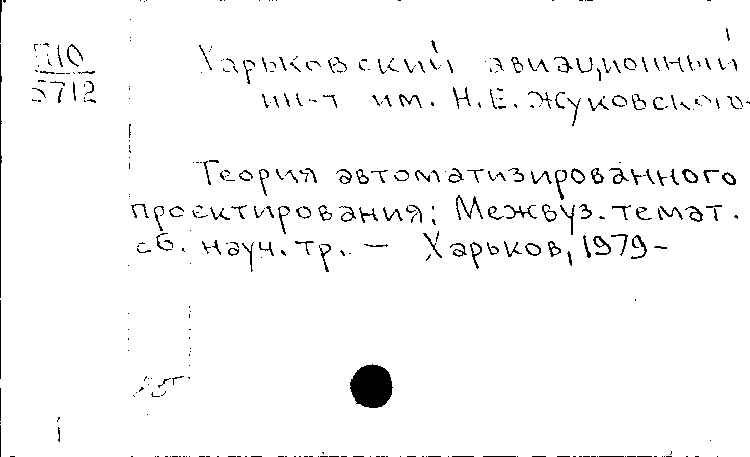 П10
5712
Харьковский авиационный
ин-т им. Н.Е. Жуковского.
Теория автоматизированного
проектирования: Межвуз. темат.
сб. науч. тр. — Харьков, 1979-